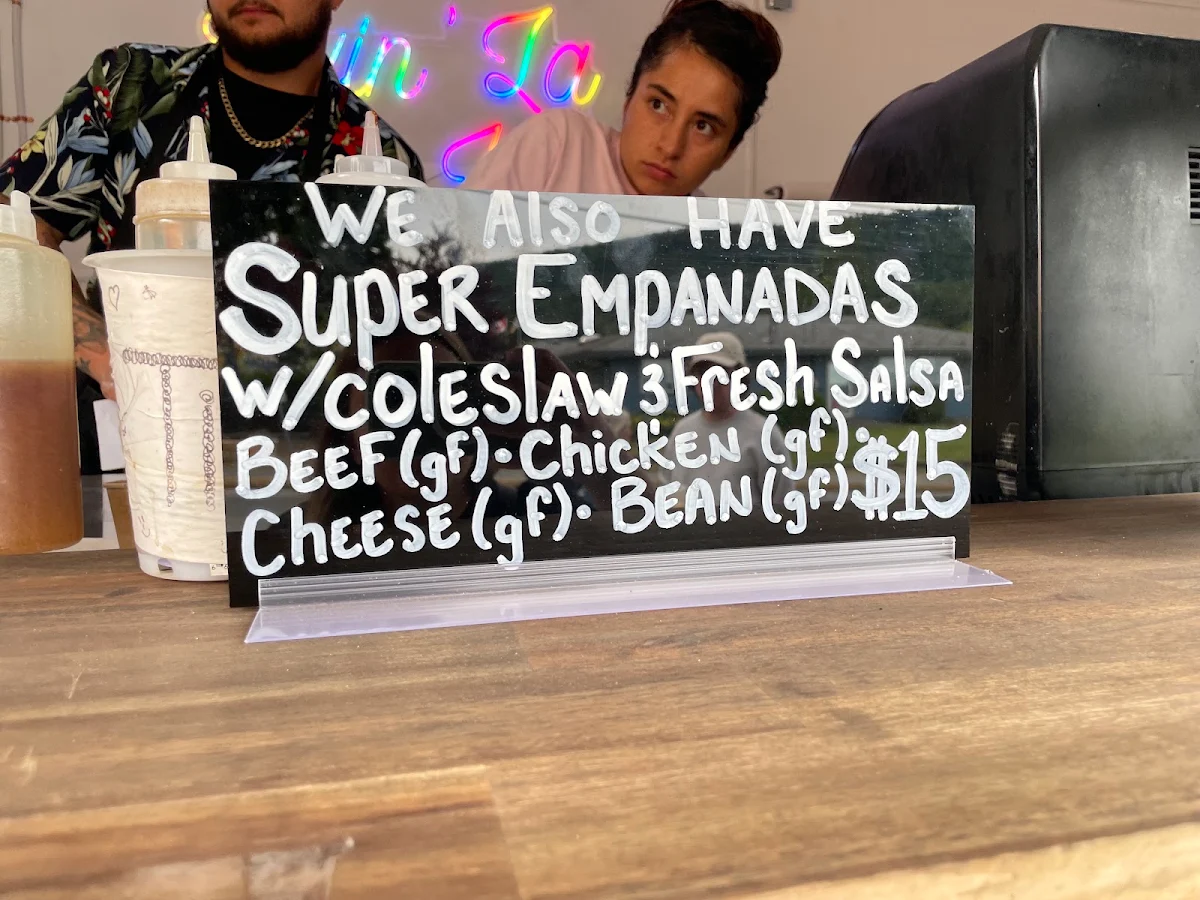 in' La
WE AlSO HAVE
SupER EMpANADAS
w/colESlAW & FrESh SAlSA
BEEF (gf) • ChicKEN (gf) •
ChEESE (gf) • BEAN (gf) $15